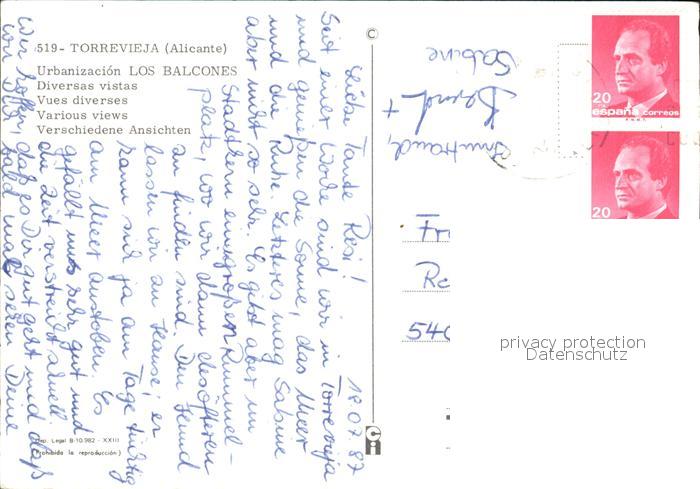 519- TORREVIEJA (Alicante)
Urbanización LOS BALCONES
Diversas vistas
Vues diverses
Various views
Verschiedene Ansichten
18.07.87
Liebe Tante Resi!
Seit einer Woche sind wir in Torrevieja
und genießen die Sonne, das Meer
und die Ruhe. Letzteres mag Sabine
aber nicht so sehr. Es gibt aber im
Stadtkern einen großen Rummel-
platz, wo wir dann des öfteren
zu finden sind. Den Hund
lassen wir zu Hause, er
kann sich ja am Tage tüchtig
am Meer austoben. Es
gefällt uns sehr gut und
die Zeit verstreicht schnell
Wir hoffen, daß es Dir gut geht und daß
wir Dich bald mal sehen Deine
Irmtraud,
Bernd +
Sabine
Dep. Legal B-10.982 - XXIII
(Prohibida la reproducción)
©
Ci
20
españa correos
20
Fr
Re
540
privacy protection
Datenschutz